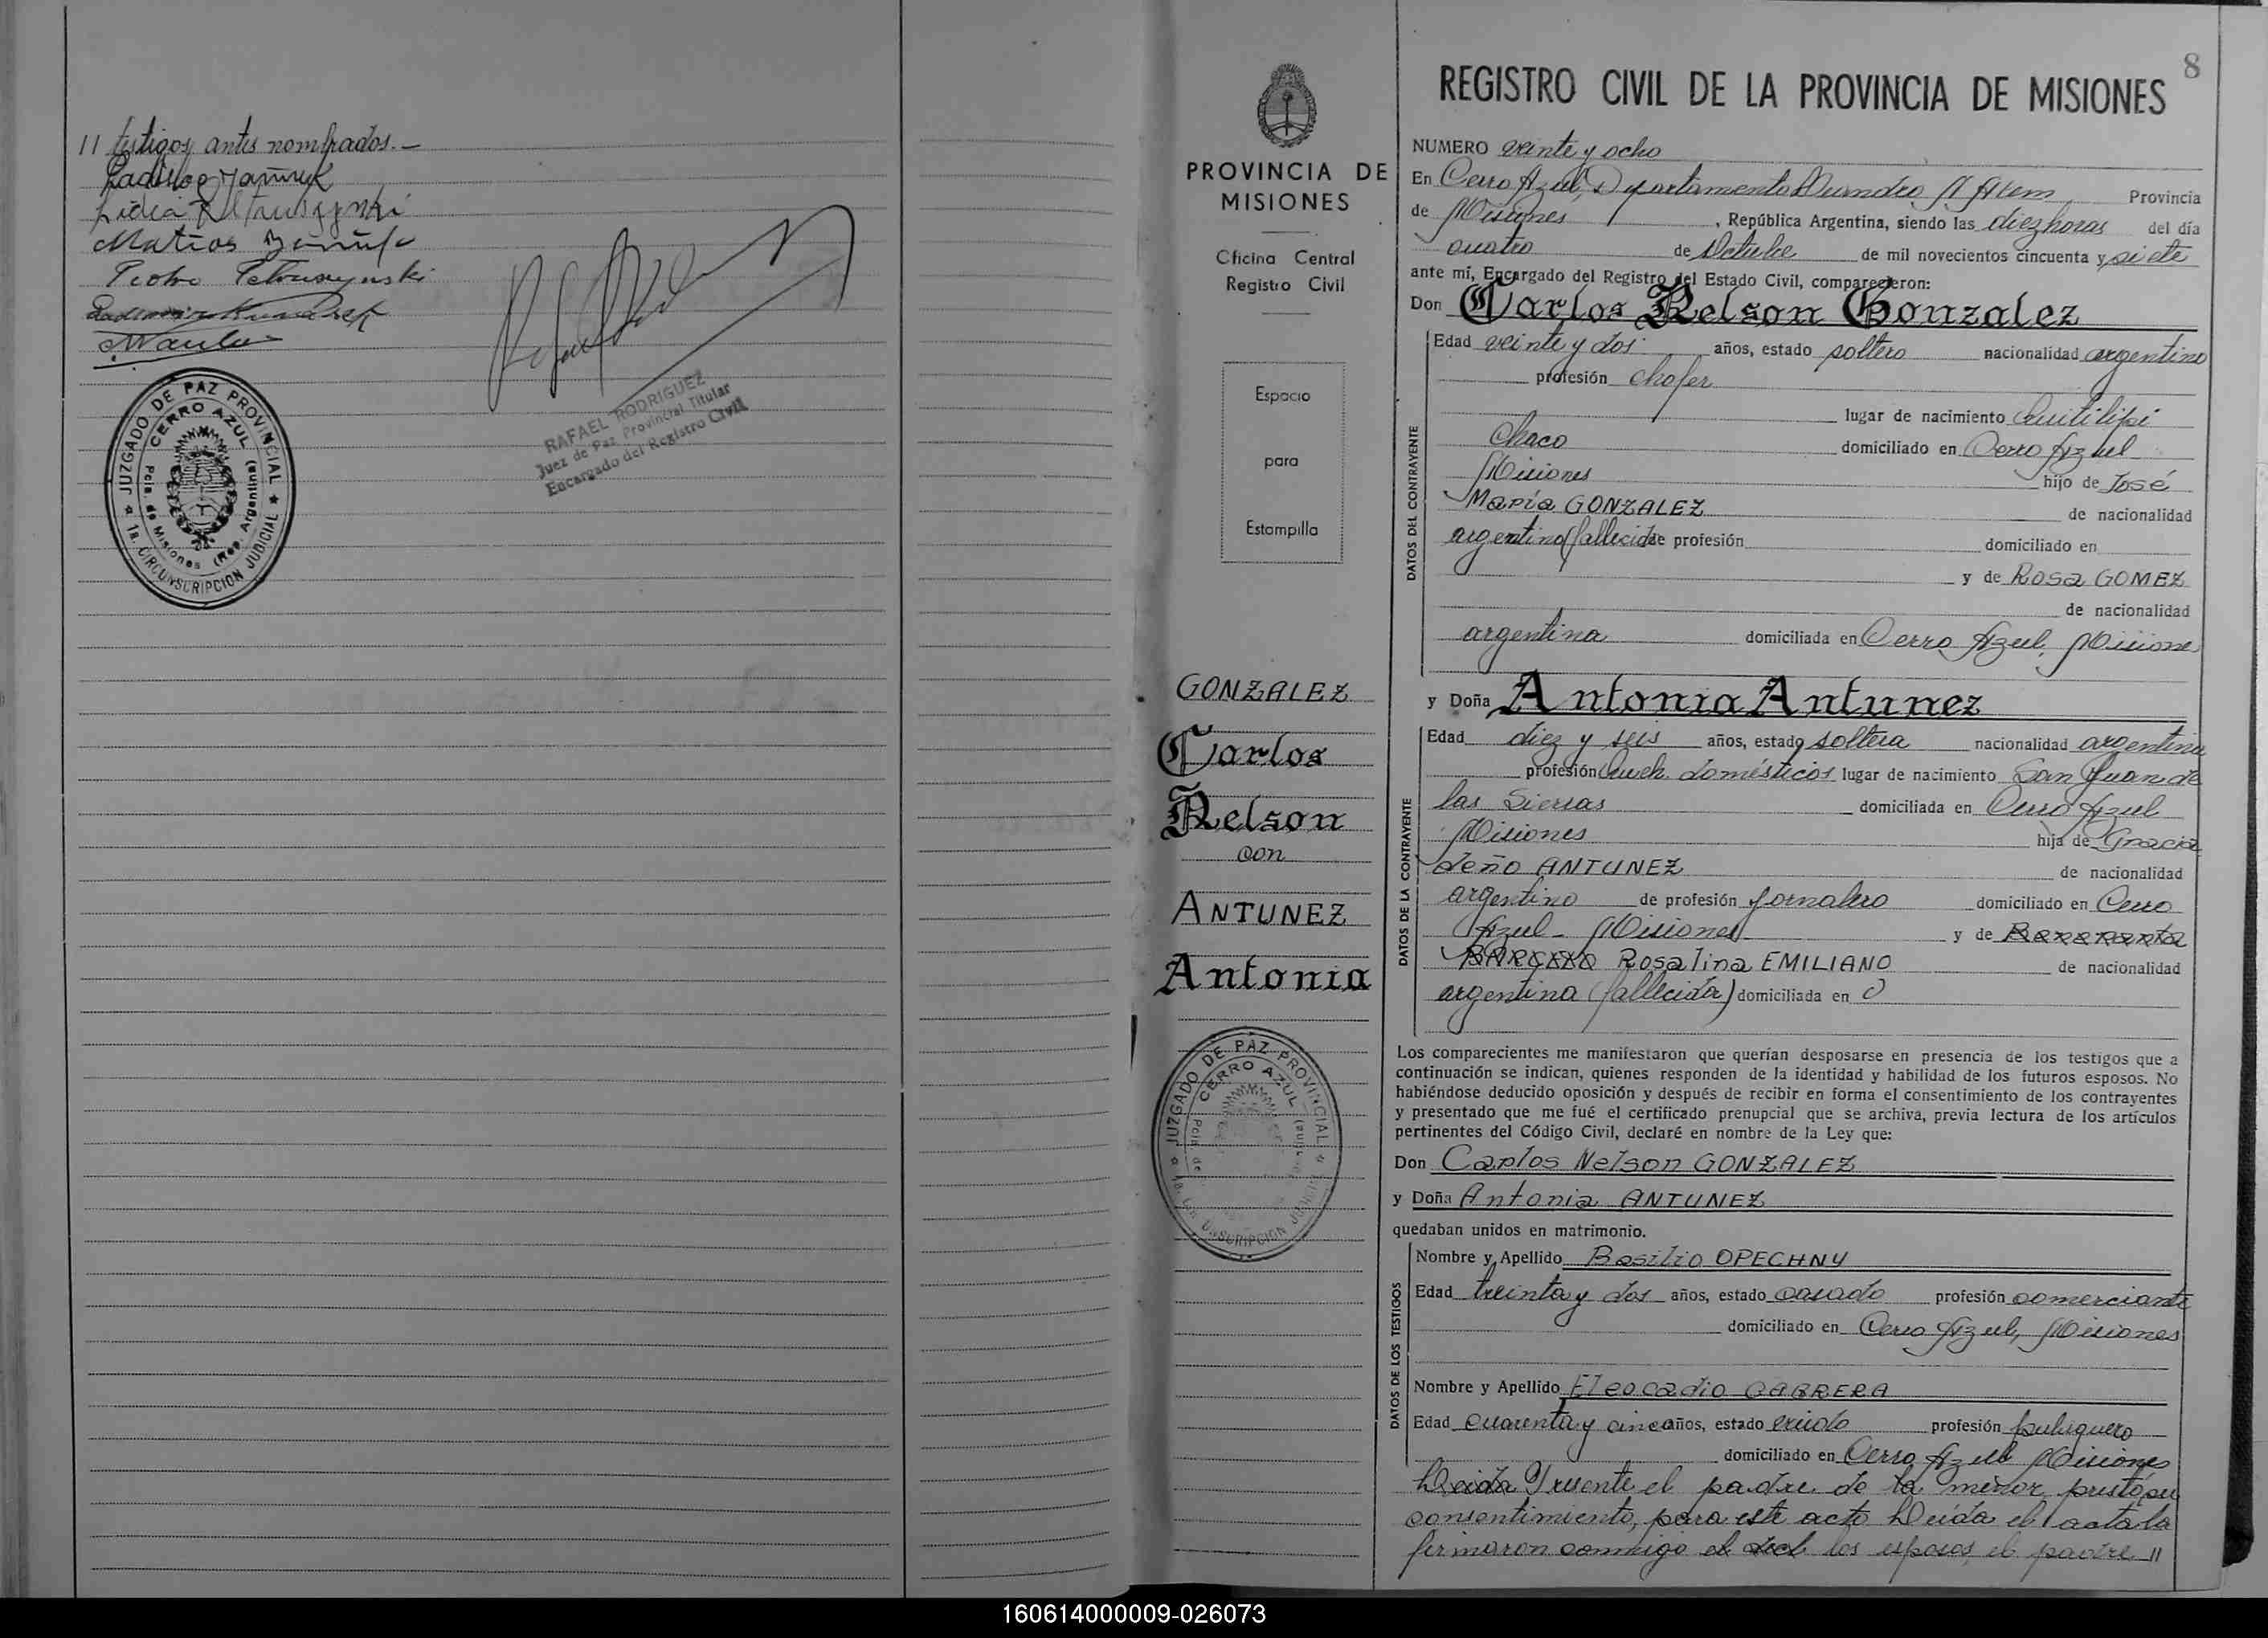 // testigos antes nombrados.-
Matias
Pedro Petruszynski
JUZGADO DE PAZ PROVINCIAL
CERRO AZUL
Pcia. de Misiones (Rep. Argentina)
1a. CIRCUNSCRIPCION JUDICIAL
RAFAEL RODRIGUEZ
Juez de Paz Provincial Titular
Encargado del Registro Civil
PROVINCIA DE
MISIONES
Oficina Central
Registro Civil
Espacio
para
Estampilla
GONZALEZ
Carlos
Nelson
con
ANTUNEZ
Antonia
JUZGADO DE PAZ PROVINCIAL
CERRO AZUL
8
REGISTRO CIVIL DE LA PROVINCIA DE MISIONES
NUMERO veinte y ocho
En Cerro Azul, Departamento Leandro N Alem Provincia
de Misiones, República Argentina, siendo las diez horas del día
cuatro de Octubre de mil novecientos cincuenta y siete
ante mí, Encargado del Registro del Estado Civil, comparecieron:
Don Carlos Nelson Gonzalez
DATOS DEL CONTRAYENTE
Edad veinte y dos años, estado soltero nacionalidad argentino
profesión chofer
lugar de nacimiento Quitilipi
Chaco domiciliado en Cerro Azul
Misiones hijo de José
María GONZALEZ de nacionalidad
argentino (fallecido) de profesión domiciliado en
y de Rosa GOMEZ
de nacionalidad
argentina domiciliada en Cerro Azul, Misiones
y Doña Antonia Antunez
DATOS DE LA CONTRAYENTE
Edad diez y seis años, estado soltera nacionalidad argentina
profesión Queh. domésticos lugar de nacimiento San Juan de
las Sierras domiciliada en Cerro Azul
Misiones hija de Gracia
deño ANTUNEZ de nacionalidad
argentino de profesión Jornalero domiciliado en Cerro
Azul - Misiones y de
Rosalina EMILIANO de nacionalidad
argentina (fallecida) domiciliada en
Los comparecientes me manifestaron que querían desposarse en presencia de los testigos que a
continuación se indican, quienes responden de la identidad y habilidad de los futuros esposos. No
habiéndose deducido oposición y después de recibir en forma el consentimiento de los contrayentes
y presentado que me fué el certificado prenupcial que se archiva, previa lectura de los artículos
pertinentes del Código Civil, declaré en nombre de la Ley que:
Don Carlos Nelson GONZALEZ
y Doña Antonia ANTUNEZ
quedaban unidos en matrimonio.
DATOS DE LOS TESTIGOS
Nombre y Apellido Basilio OPECHNY
Edad treinta y dos años, estado casado profesión comerciante
domiciliado en Cerro Azul, Misiones
Nombre y Apellido Eleocadio CABRERA
Edad cuarenta y cinco años, estado viudo profesión peluquero
domiciliado en Cerro Azul Misiones
Leida Presente el padre de la menor prestó su
consentimiento, para este acto Leída el acta la
firmaron conmigo el los esposos el padre //
160614000009-026073